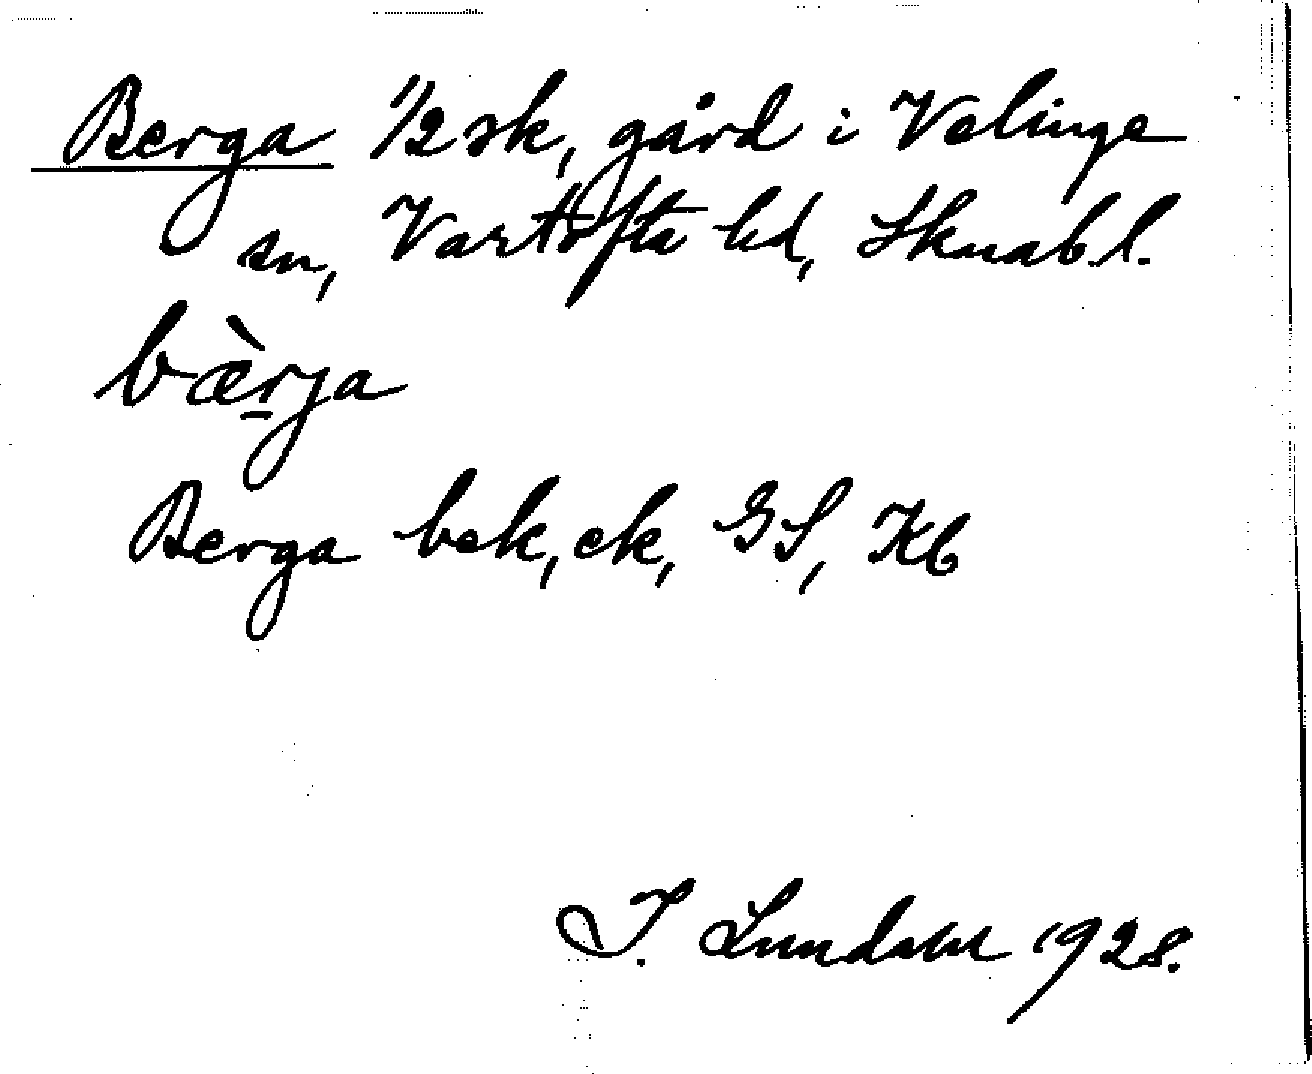 Berga 1/2 sk, gård i Velinge
sn, Vartofta hd, Skuabl.
bæ̀rja
Berga bek, ek, GS, Kb
I. Lundahl 1928.